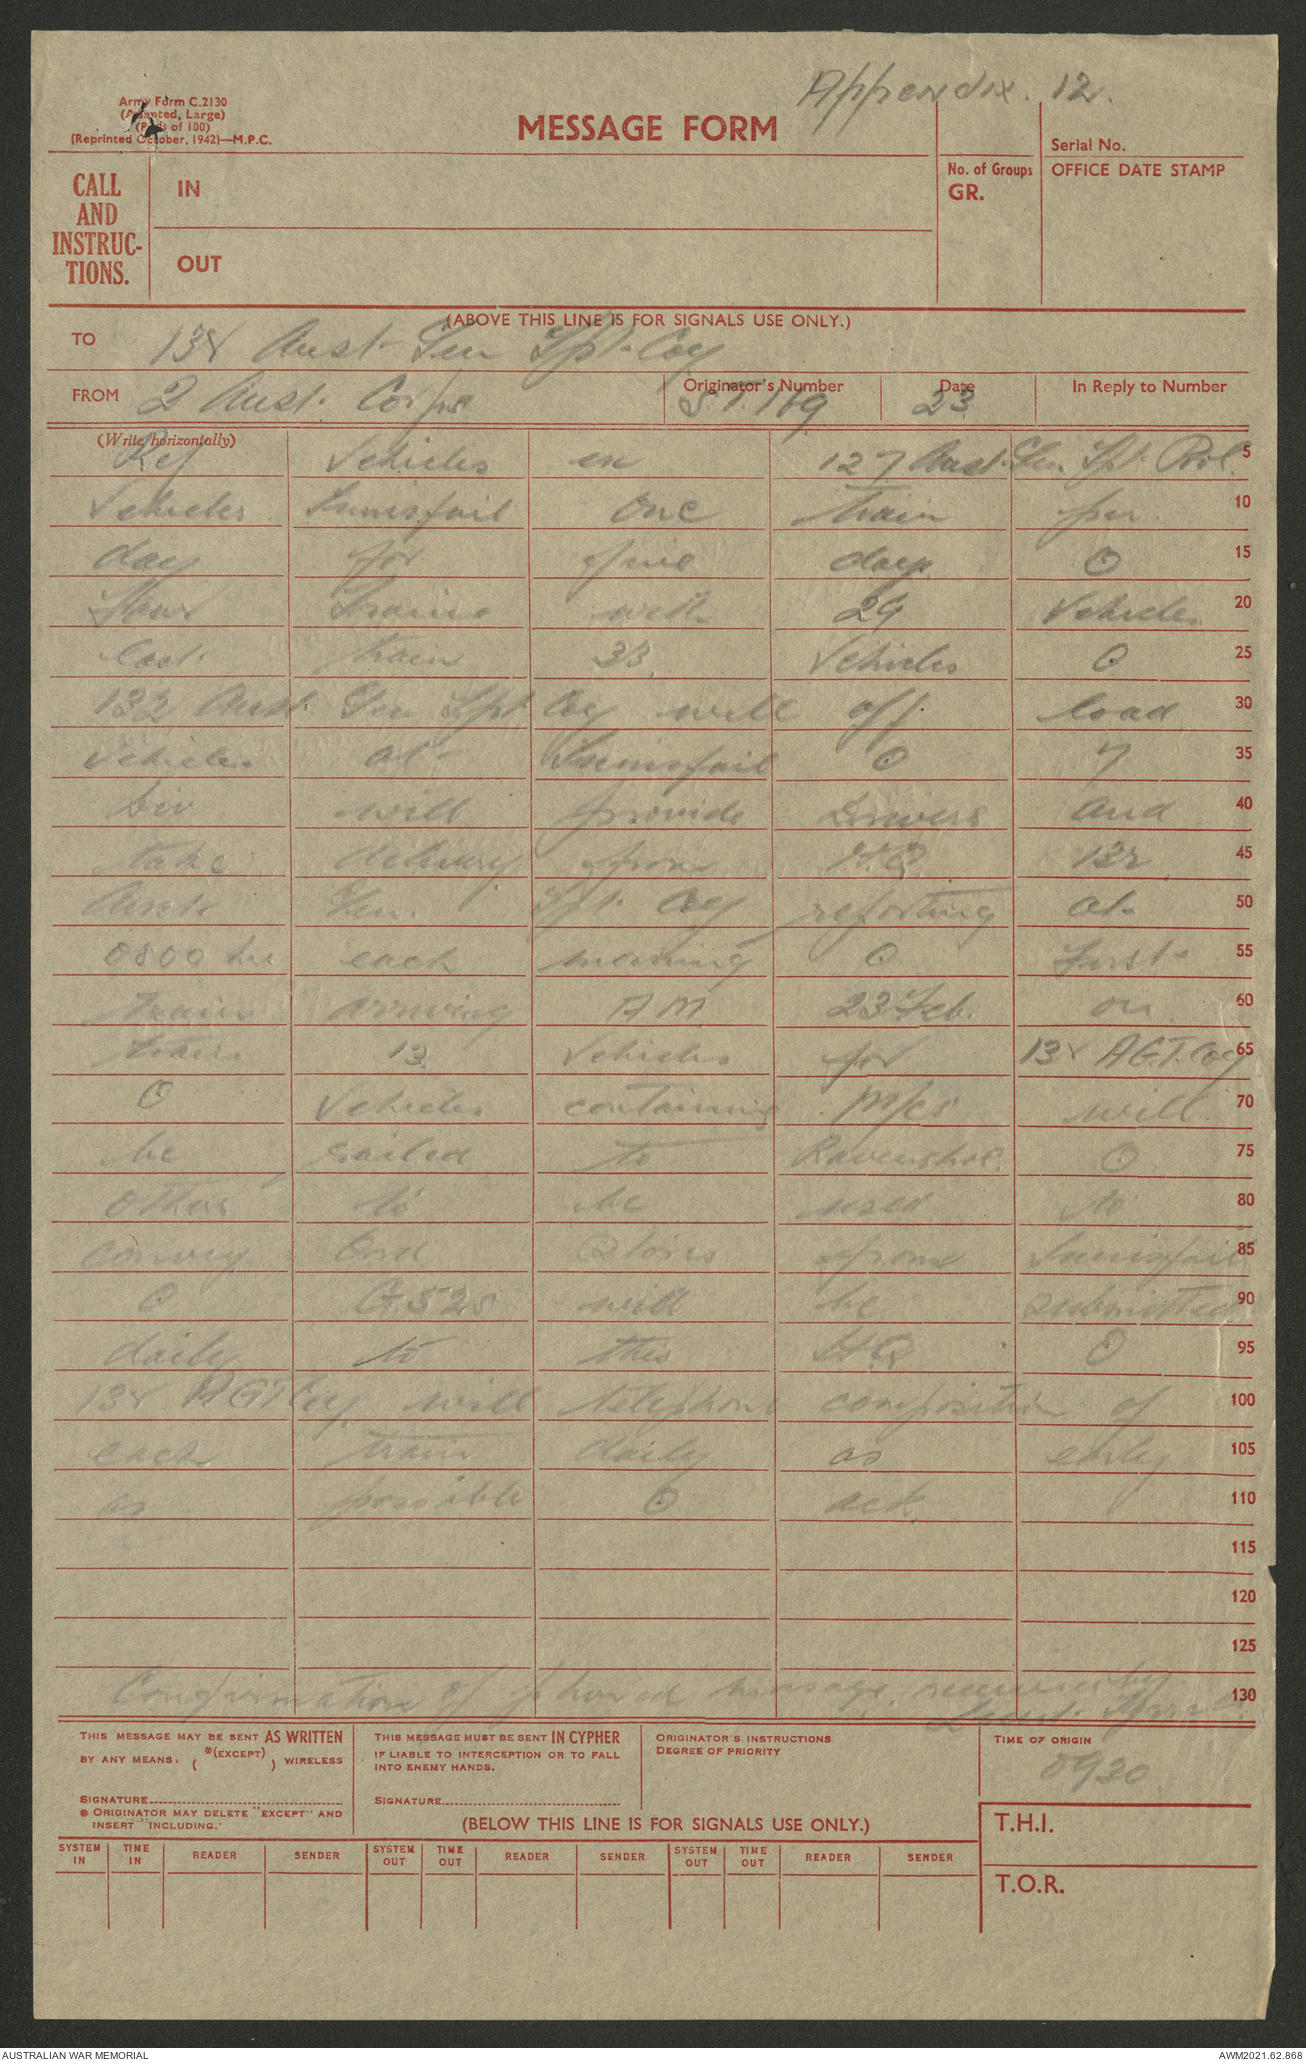 Appendix. 12.
Army Form C.2130
(Adapted, Large)
(Pads of 100)
(Reprinted October, 1942)—M.P.C.
MESSAGE FORM
Serial No.
CALL AND INSTRUC-TIONS.
IN
OUT
No. of Groups
GR.
OFFICE DATE STAMP
(ABOVE THIS LINE IS FOR SIGNALS USE ONLY.)
TO 138 Aust Gen Tpt Coy
FROM 2 Aust. Corps Originator's Number S.T.169 Date 23 In Reply to Number
(Write horizontally)
Ref Vehicles ex 127 Aust. Gen Tpt. 5
Vehicles Innisfail one train per 10
day for five days O 15
Four trains with 29 Vehicles 20
last train 33 Vehicles O 25
132 Aust. Gen Tpt Coy will off load 30
vehicles at Innisfail O 7 35
Div will provide drivers and 40
take delivery from H.Q. 132 45
Aust Gen. Tpt. Coy reporting at 50
0800 hrs each morning O first 55
train arriving AM 23 Feb. on 60
train 13 Vehicles for 138 A.G.T. Coy 65
O Vehicles containing M/cs will 70
be railed to Ravenshoe O 75
others to be used to 80
convey Ord Stores from Innisfail 85
O G.528 will be submitted 90
daily to this HQ O 95
138 AGT Coy will telephone composition of 100
each train daily as early 105
as possible O ack. 110
115
120
125
Confirmation of phoned message received by 130
THIS MESSAGE MAY BE SENT AS WRITTEN
BY ANY MEANS. ( *(EXCEPT) ) WIRELESS
SIGNATURE
* ORIGINATOR MAY DELETE "EXCEPT" AND
INSERT "INCLUDING."
THIS MESSAGE MUST BE SENT IN CYPHER
IF LIABLE TO INTERCEPTION OR TO FALL
INTO ENEMY HANDS.
SIGNATURE
ORIGINATOR'S INSTRUCTIONS
DEGREE OF PRIORITY
TIME OF ORIGIN
0930
(BELOW THIS LINE IS FOR SIGNALS USE ONLY.)
T.H.I.
T.O.R.
SYSTEM IN TIME IN READER SENDER SYSTEM OUT TIME OUT READER SENDER SYSTEM OUT TIME OUT READER SENDER
AUSTRALIAN WAR MEMORIAL AWM2021.62.868